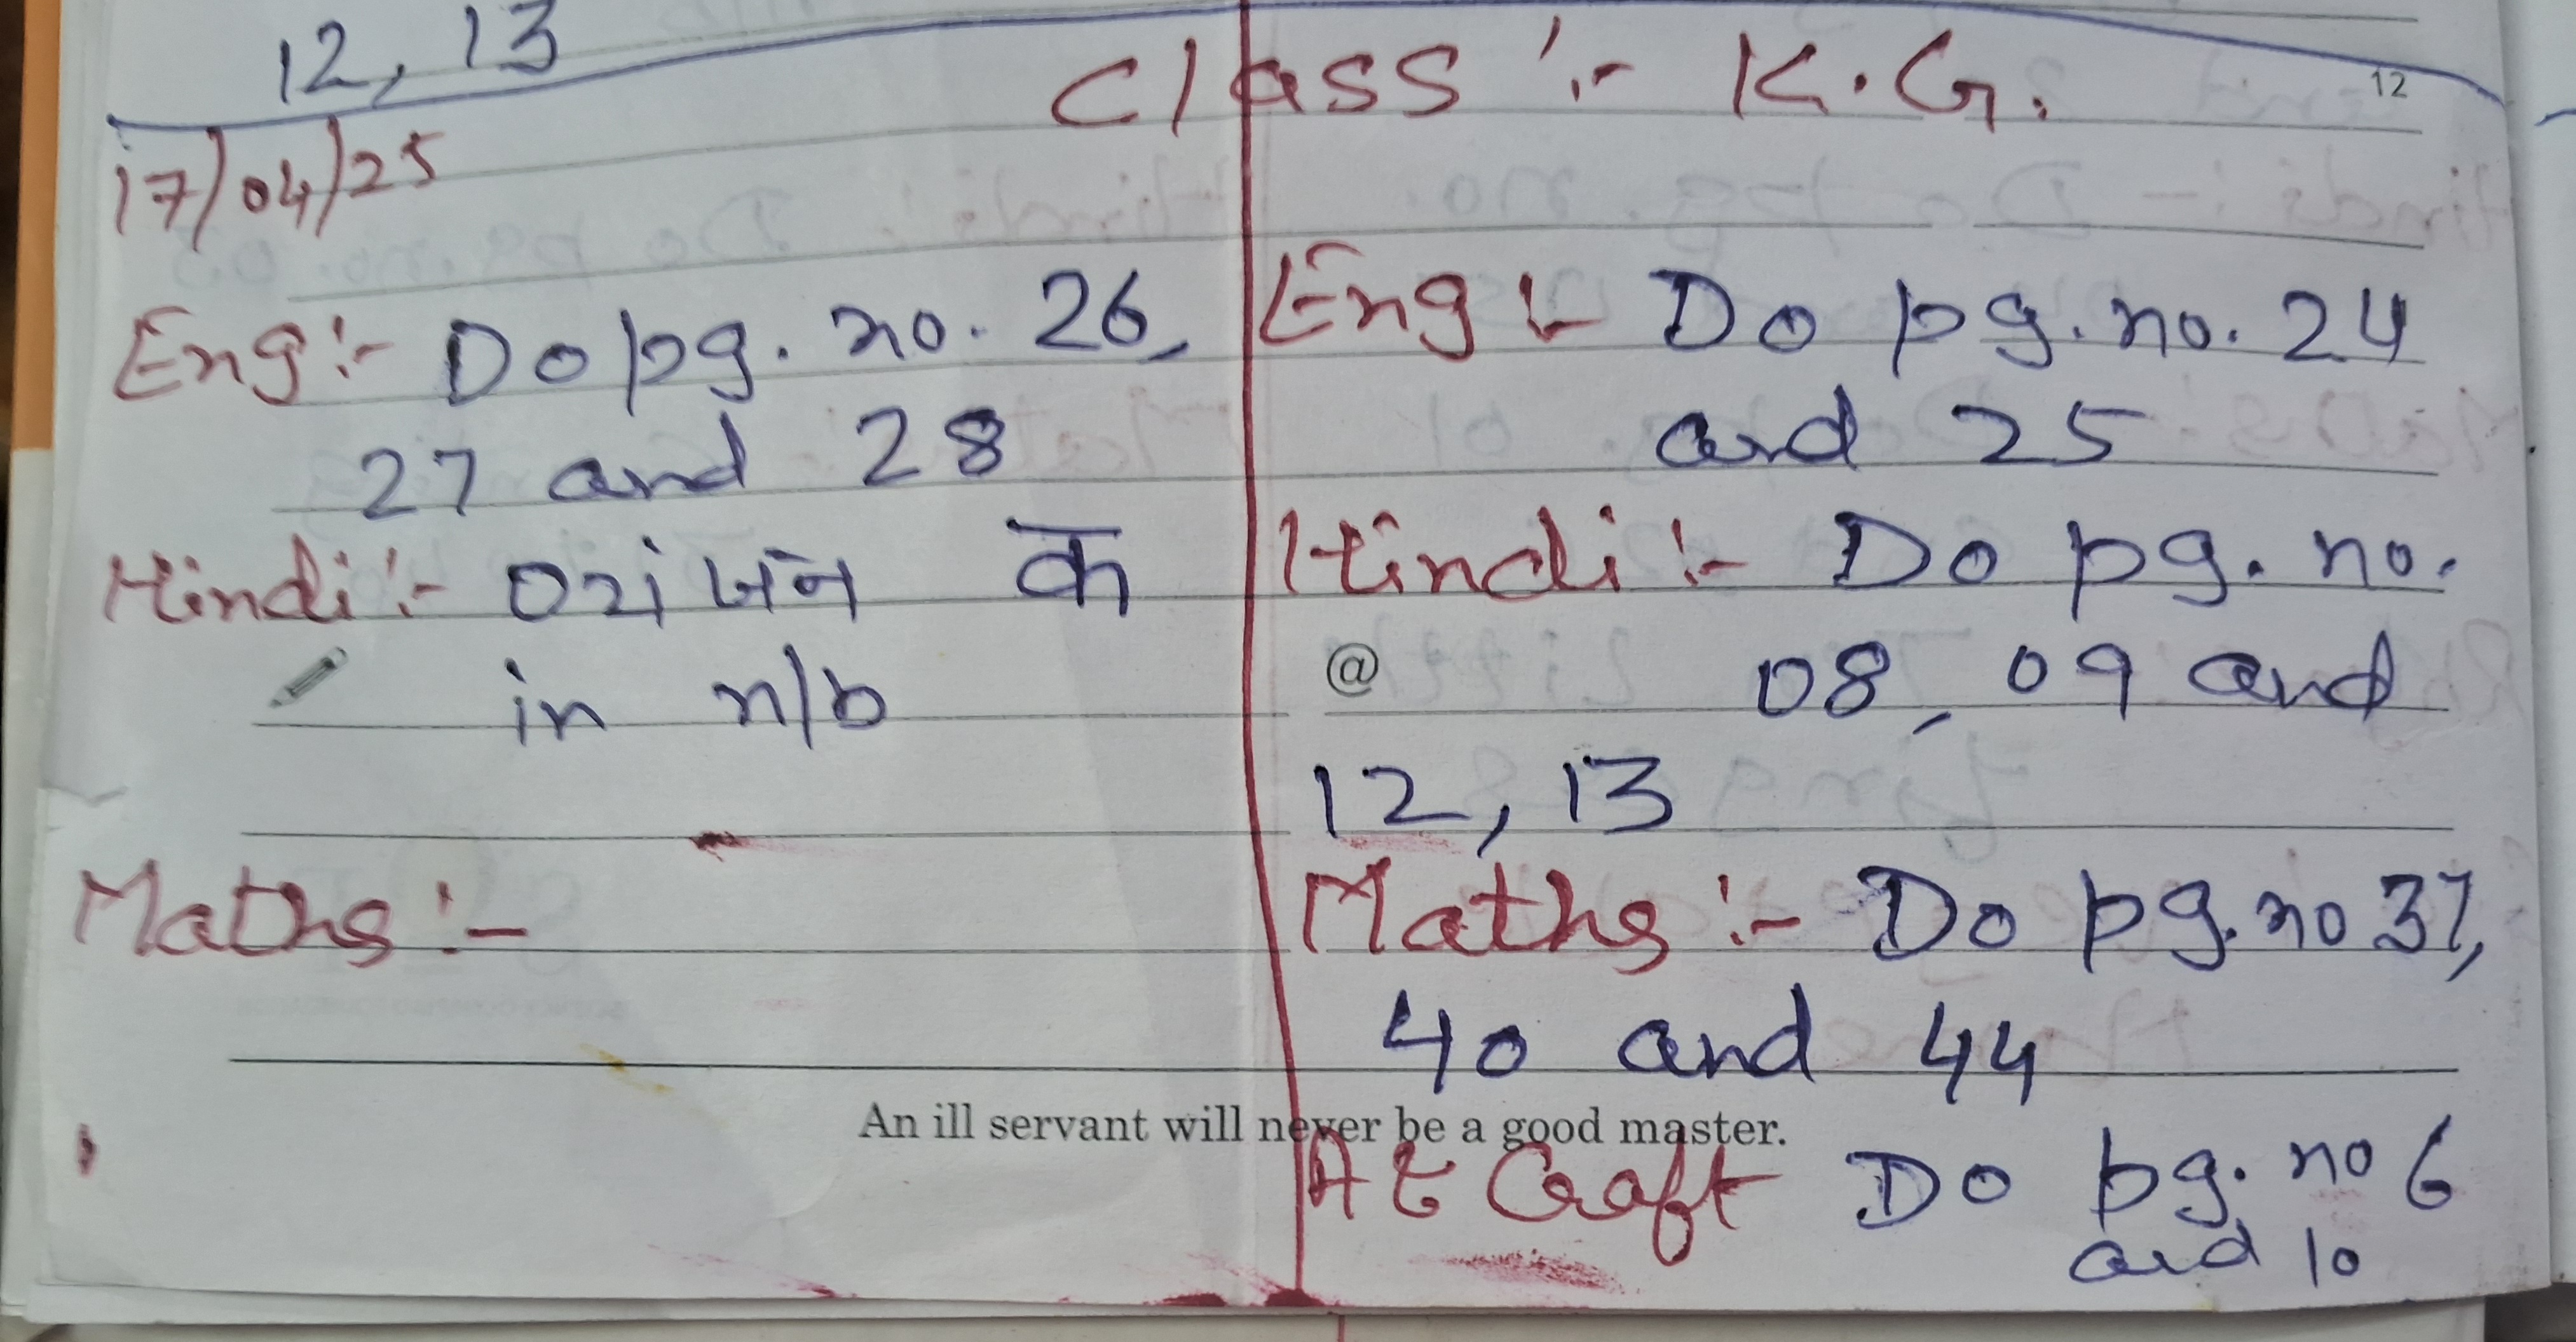 12, 13
Class :- K.G.
12
17/04/25
Eng :- Do pg. no. 26,
27 and 28
Hindi :- व्यंजन क
in n/b
Maths :-
Eng :- Do pg. no. 24
and 25
Hindi :- Do pg. no.
@ 08, 09 and
12, 13
Maths :- Do pg. no 37,
40 and 44
An ill servant will never be a good master.
Craft Do pg. no 6
and 10